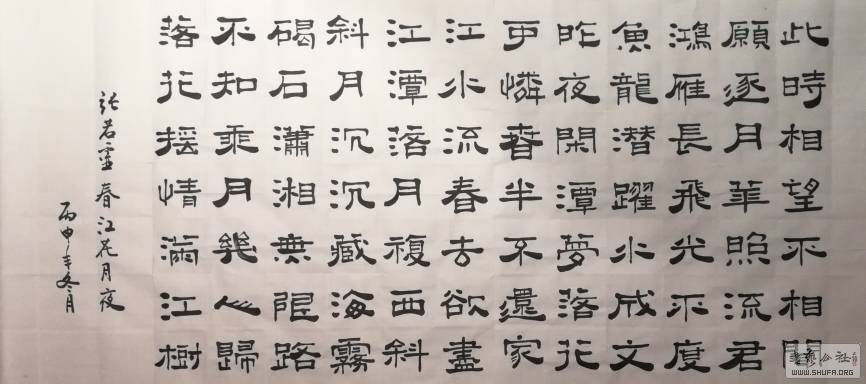 此時相望不相聞
願逐月華照流君
鴻雁長飛光不度
魚龍潛躍水成文
昨夜閑潭夢落花
可憐春半不還家
江水流春去欲盡
江潭落月複西斜
斜月沉沉藏海霧
碣石瀟湘無限路
不知乘月幾人歸
落花搖情滿江樹
張若虛春江花月夜
丙申年冬月
公社
WWW.SHUFA.ORG